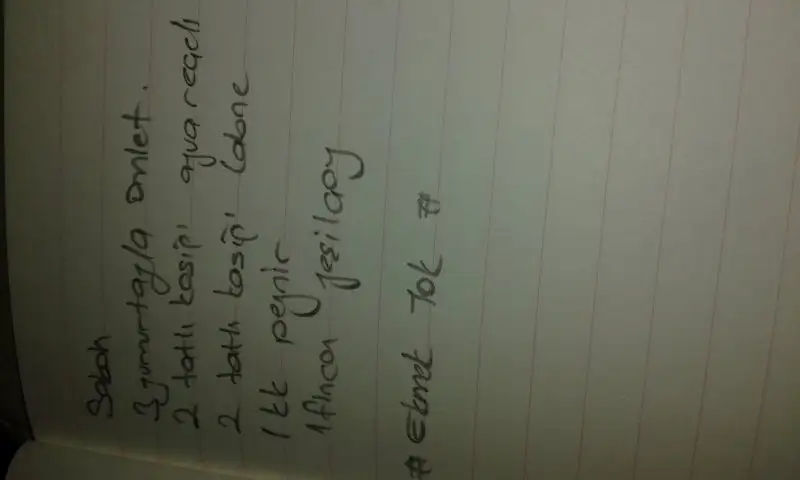 Sabah
3 yumurtayla omlet.
2 tatlı kaşığı ayva reçeli
2 tatlı kaşığı labne
1 kk peynir
1 fincan yeşilçay
# Ekmek Yok #